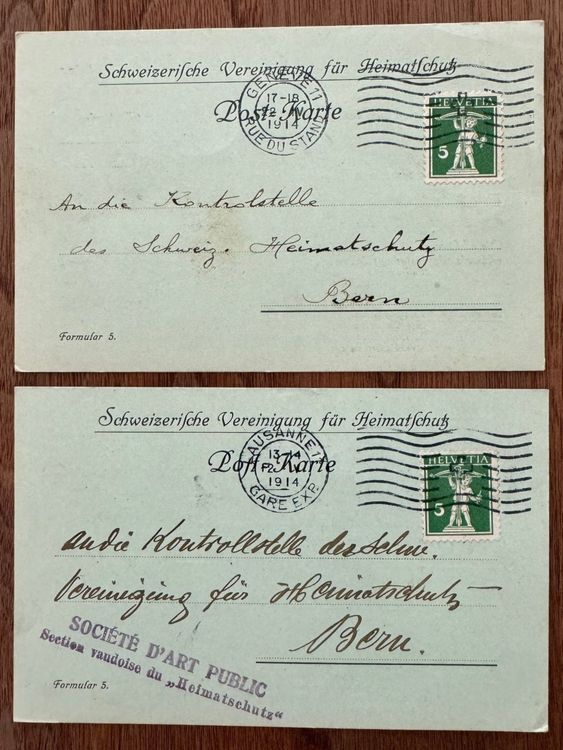 Schweizerische Vereinigung für Heimatschutz
GENÈVE 11
17-18
1914
RUE DU STAND
Post-Karte
HELVETIA
5
An die Kontrolstelle
des Schweiz. Heimatschutz
Bern
Formular 5.
Schweizerische Vereinigung für Heimatschutz
LAUSANNE 1
13-14
1914
GARE EXP.
Post-Karte
HELVETIA
5
an die Kontrollstelle des Schw.
Vereinigung für Heimatschutz
Bern.
SOCIÉTÉ D'ART PUBLIC
Section vaudoise du „Heimatschutz“
Formular 5.